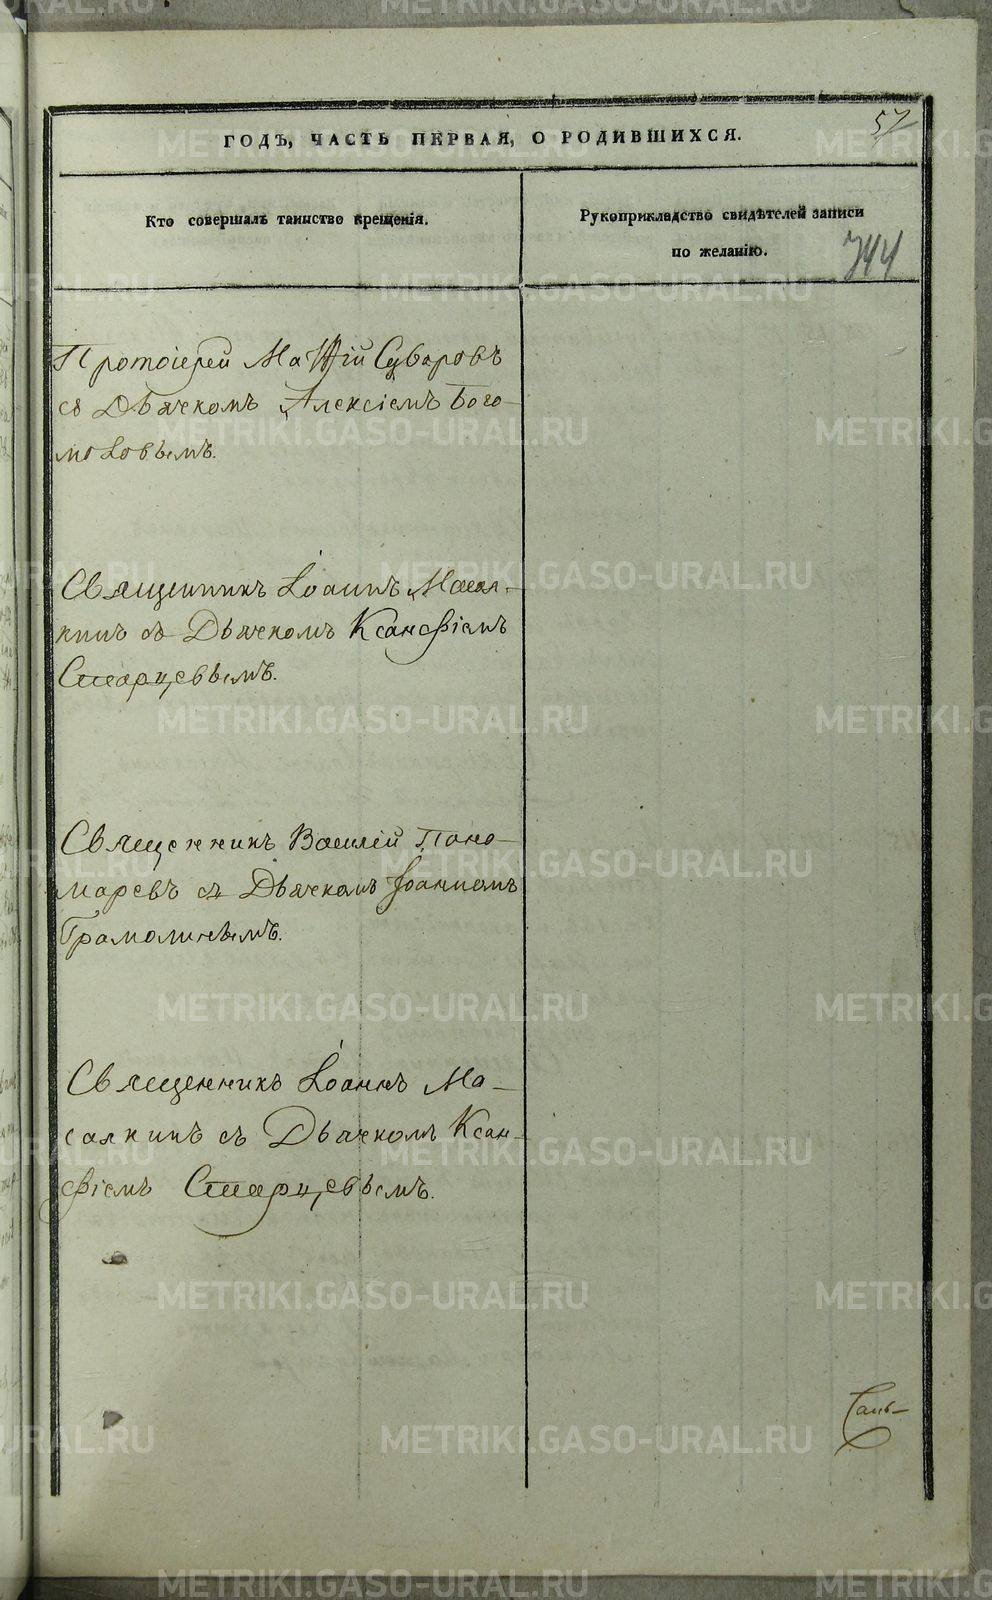 57
ГОДЪ, ЧАСТЬ ПЕРВАЯ, О РОДИВШИХСЯ.
Кто совершалъ таинство крещенія.
Рукоприкладство свидѣтелей записи
по желанію.
744
Протоіерей Матѳій Суваровъ
съ Дьячкомъ Алексіемъ Бого-
моловымъ.
Священникъ Іоаннъ Масал-
кинъ съ Дьячкомъ Ксанѳіемъ
Старцевымъ.
Священникъ Василій Поно-
маревъ съ Дьячкомъ Іоанномъ
Грамолинымъ.
Священникъ Іоаннъ Ма-
салкинъ съ Дьячкомъ Ксан-
фіемъ Старцевымъ.
METRIKI.GASO-URAL.RU